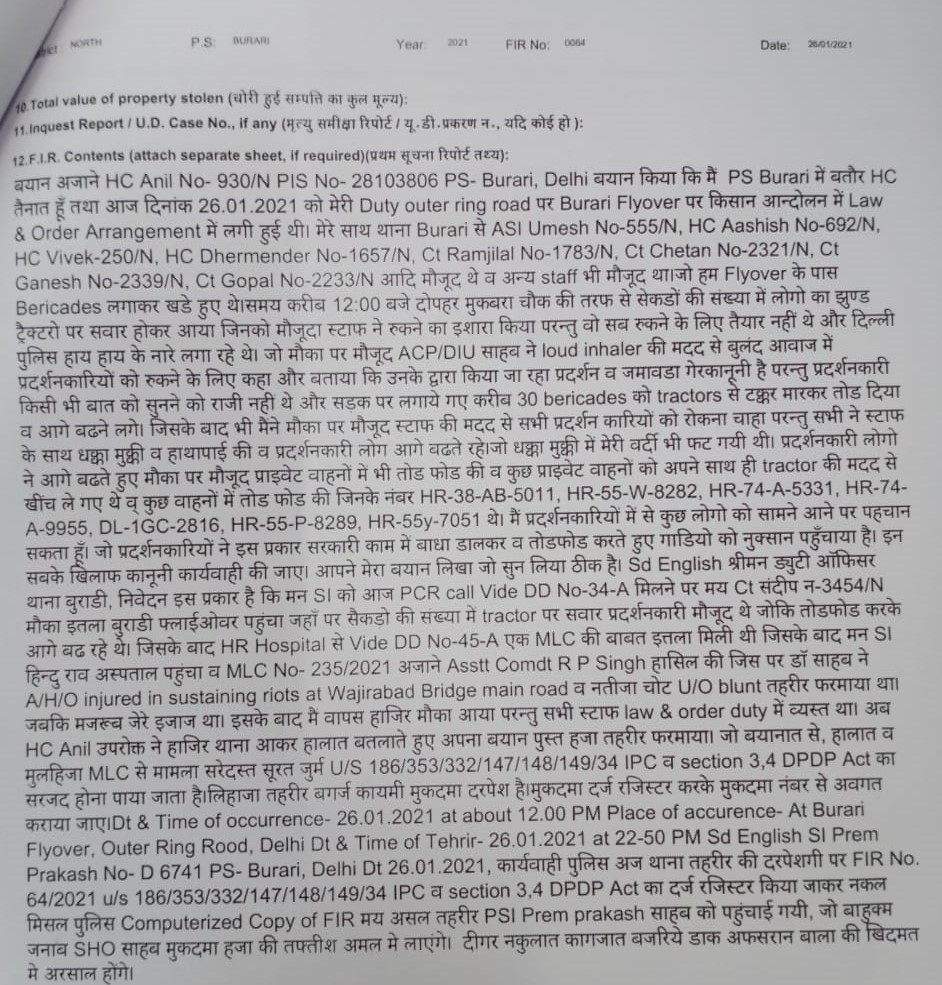 NORTH P.S: BURARI Year: 2021 FIR No: 0064 Date: 26/01/2021
10.Total value of property stolen (चोरी हुई सम्पत्ति का कुल मूल्य):
11.Inquest Report / U.D. Case No., if any (मृत्यु समीक्षा रिपोर्ट / यू.डी.प्रकरण न., यदि कोई हो ):
12.F.I.R. Contents (attach separate sheet, if required)(प्रथम सूचना रिपोर्ट तथ्य):
बयान अजाने HC Anil No- 930/N PIS No- 28103806 PS- Burari, Delhi बयान किया कि मैं PS Burari में बतौर HC
तैनात हूँ तथा आज दिनांक 26.01.2021 को मेरी Duty outer ring road पर Burari Flyover पर किसान आन्दोलन में Law
& Order Arrangement में लगी हुई थी। मेरे साथ थाना Burari से ASI Umesh No-555/N, HC Aashish No-692/N,
HC Vivek-250/N, HC Dhermender No-1657/N, Ct Ramjilal No-1783/N, Ct Chetan No-2321/N, Ct
Ganesh No-2339/N, Ct Gopal No-2233/N आदि मौजूद थे व अन्य staff भी मौजूद था।जो हम Flyover के पास
Bericades लगाकर खडे हुए थे।समय करीब 12:00 बजे दोपहर मुकबरा चौक की तरफ से सेकडों की संख्या में लोगो का झुण्ड
ट्रैक्टरो पर सवार होकर आया जिनको मौजूदा स्टाफ ने रुकने का इशारा किया परन्तु वो सब रुकने के लिए तैयार नहीं थे और दिल्ली
पुलिस हाय हाय के नारे लगा रहे थे। जो मौका पर मौजूद ACP/DIU साहब ने loud inhaler की मदद से बुलंद आवाज में
प्रदर्शनकारियों को रुकने के लिए कहा और बताया कि उनके द्वारा किया जा रहा प्रदर्शन व जमावडा गेरकानूनी है परन्तु प्रदर्शनकारी
किसी भी बात को सुनने को राजी नहीं थे और सड़क पर लगाये गए करीब 30 bericades को tractors से टक्कर मारकर तोड दिया
व आगे बढने लगे। जिसके बाद भी मैंने मौका पर मौजूद स्टाफ की मदद से सभी प्रदर्शन कारियों को रोकना चाहा परन्तु सभी ने स्टाफ
के साथ धक्का मुक्की व हाथापाई की व प्रदर्शनकारी लोग आगे बढते रहे।जो धक्का मुक्की में मेरी वर्दी भी फट गयी थी। प्रदर्शनकारी लोगो
ने आगे बढते हुए मौका पर मौजूद प्राइवेट वाहनों में भी तोड फोड की व कुछ प्राइवेट वाहनों को अपने साथ ही tractor की मदद से
खींच ले गए थे व् कुछ वाहनों में तोड फोड की जिनके नंबर HR-38-AB-5011, HR-55-W-8282, HR-74-A-5331, HR-74-
A-9955, DL-1GC-2816, HR-55-P-8289, HR-55y-7051 थे। मैं प्रदर्शनकारियों में से कुछ लोगो को सामने आने पर पहचान
सकता हूँ। जो प्रदर्शनकारियों ने इस प्रकार सरकारी काम में बाधा डालकर व तोडफोड करते हुए गाडियो को नुक्सान पहुँचाया है। इन
सबके खिलाफ कानूनी कार्यवाही की जाए। आपने मेरा बयान लिखा जो सुन लिया ठीक है। Sd English श्रीमन ड्युटी ऑफिसर
थाना बुराडी, निवेदन इस प्रकार है कि मन SI को आज PCR call Vide DD No-34-A मिलने पर मय Ct संदीप न-3454/N
मौका इतला बुराडी फ्लाईओवर पहुंचा जहाँ पर सैकडो की संख्या में tractor पर सवार प्रदर्शनकारी मौजूद थे जोकि तोडफोड करके
आगे बढ रहे थे। जिसके बाद HR Hospital से Vide DD No-45-A एक MLC की बाबत इत्तला मिली थी जिसके बाद मन SI
हिन्दु राव अस्पताल पहुंचा व MLC No- 235/2021 अजाने Asstt Comdt R P Singh हासिल की जिस पर डॉ साहब ने
A/H/O injured in sustaining riots at Wajirabad Bridge main road व नतीजा चोट U/O blunt तहरीर फरमाया था।
जबकि मजरूब जेरे इजाज था। इसके बाद मै वापस हाजिर मौका आया परन्तु सभी स्टाफ law & order duty में व्यस्त था। अब
HC Anil उपरोक्त ने हाजिर थाना आकर हालात बतलाते हुए अपना बयान पुस्त हजा तहरीर फरमाया। जो बयानात से, हालात व
मुलहिजा MLC से मामला सरेदस्त सूरत जुर्म U/S 186/353/332/147/148/149/34 IPC व section 3,4 DPDP Act का
सरजद होना पाया जाता है।लिहाजा तहरीर बगर्ज कायमी मुकदमा दरपेश है।मुकदमा दर्ज रजिस्टर करके मुकदमा नंबर से अवगत
कराया जाए।Dt & Time of occurrence- 26.01.2021 at about 12.00 PM Place of accurence- At Burari
Flyover, Outer Ring Rood, Delhi Dt & Time of Tehrir- 26.01.2021 at 22-50 PM Sd English SI Prem
Prakash No- D 6741 PS- Burari, Delhi Dt 26.01.2021, कार्यवाही पुलिस अज थाना तहरीर की दरपेशगी पर FIR No.
64/2021 u/s 186/353/332/147/148/149/34 IPC व section 3,4 DPDP Act का दर्ज रजिस्टर किया जाकर नकल
मिसल पुलिस Computerized Copy of FIR मय असल तहरीर PSI Prem prakash साहब को पहुंचाई गयी, जो बाहुक्म
जनाब SHO साहब मुकदमा हजा की तफ्तीश अमल मे लाएंगे। दीगर नकुलात कागजात बजरिये डाक अफसरान बाला की खिदमत
मे अरसाल होंगे।